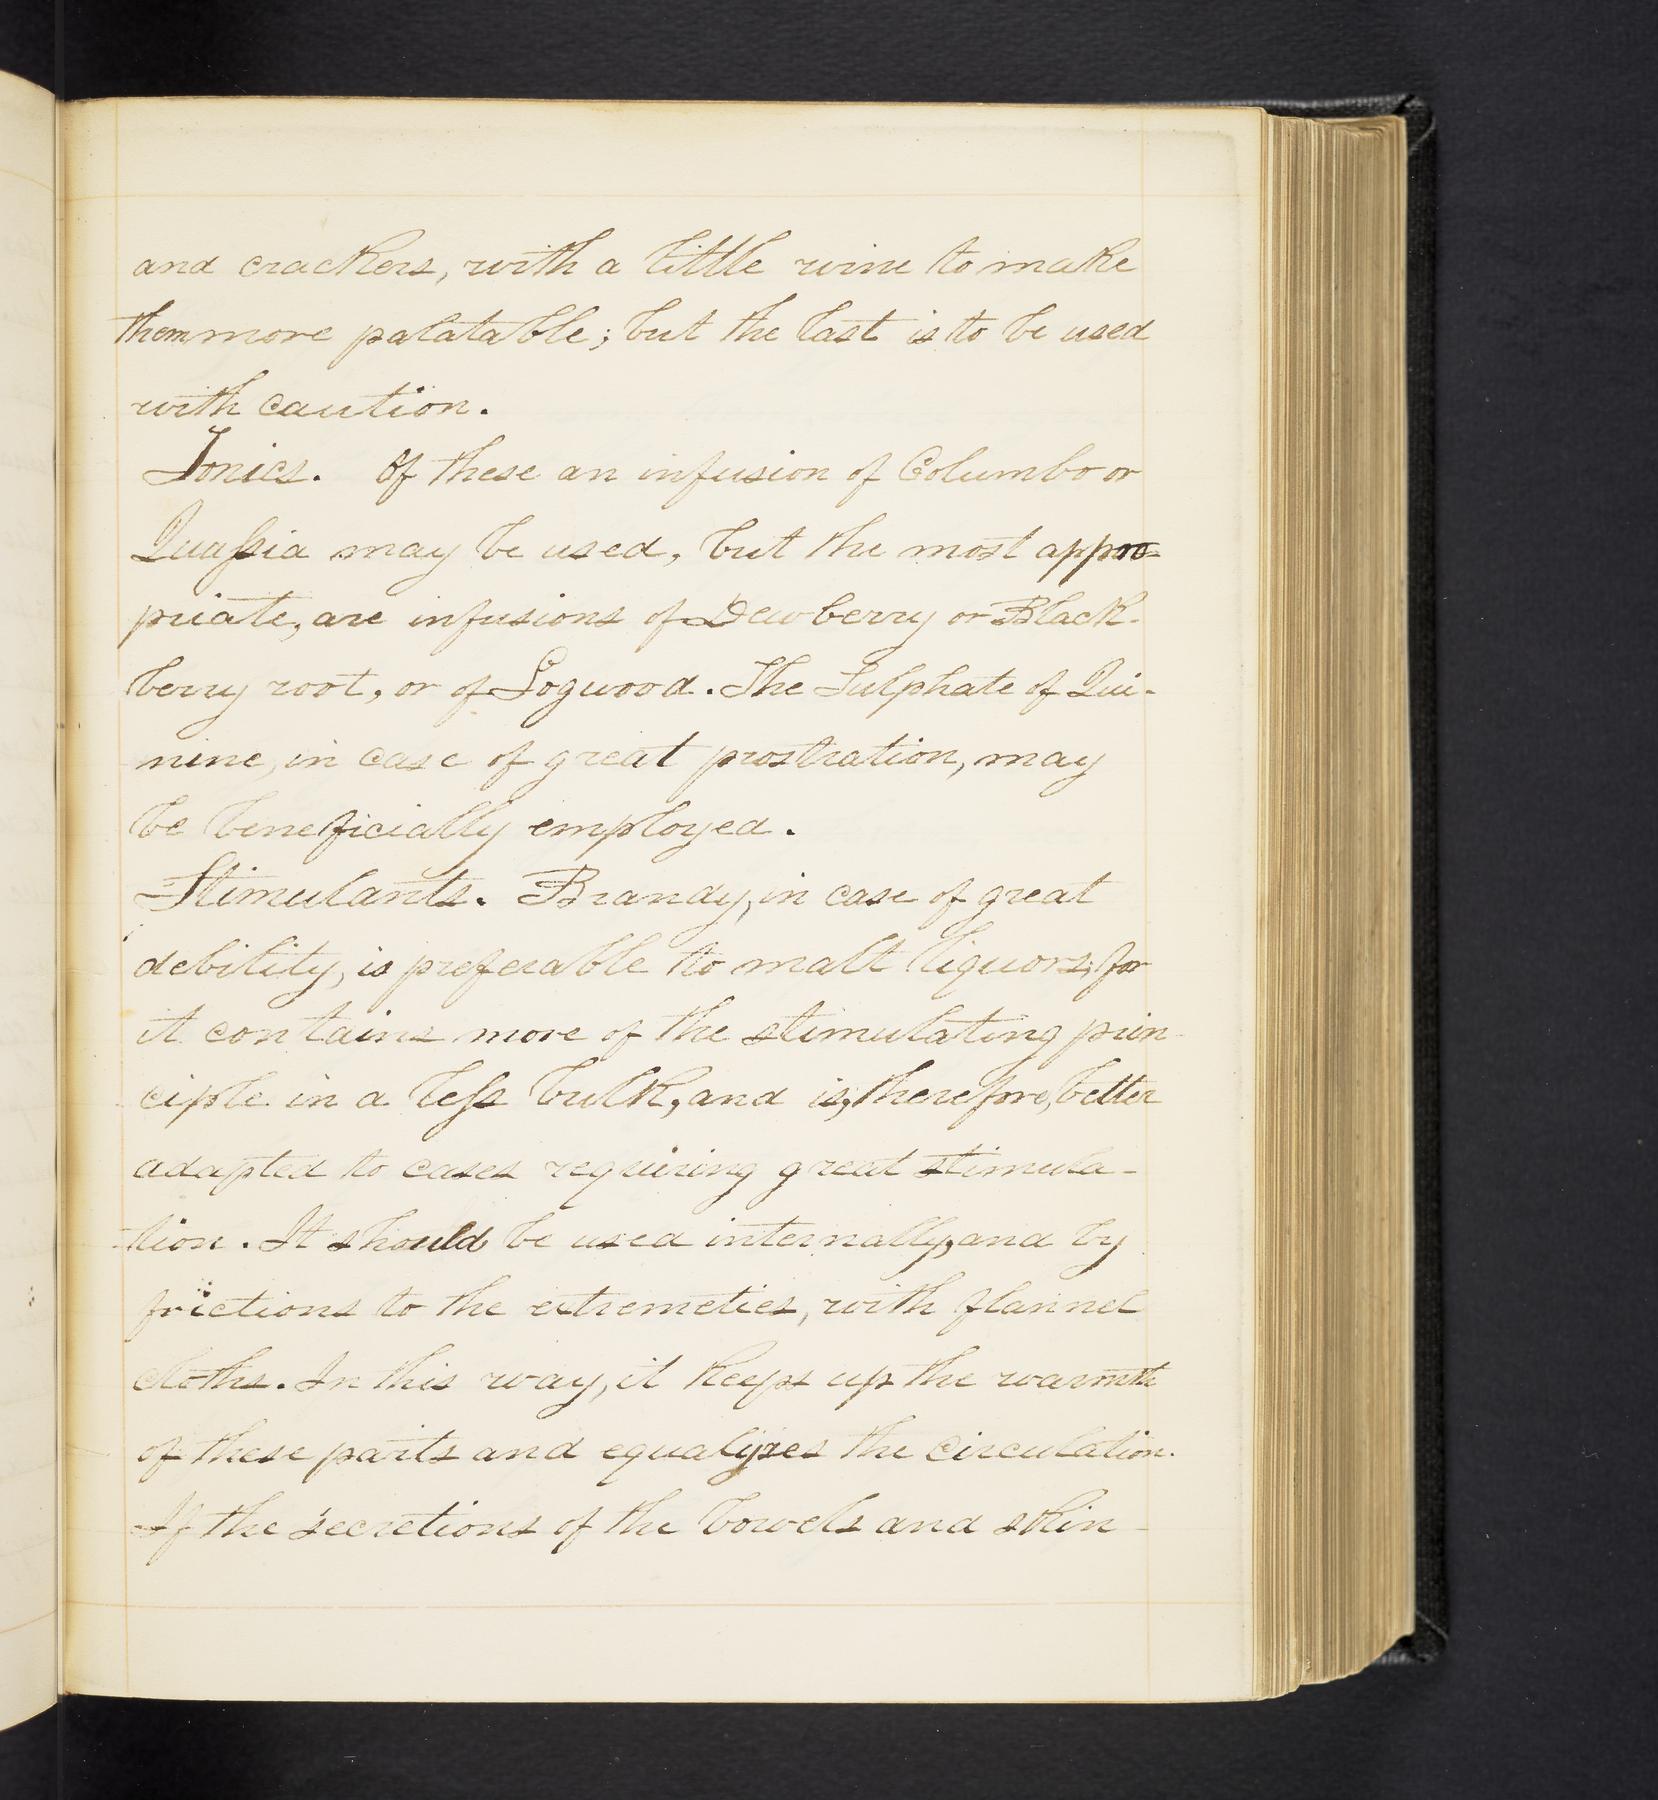 and crackers, with a little wine to make
them more palatable; but the last is to be used
with caution.
Tonics. Of these an infusion of Columbo or
Quaſsia may be used, but the most appro-
priate, are infusions of Dewberry or Black-
berry root, or of Logwood. The Sulphate of Qui-
nine, in case of great prostration, may
be beneficially employed.
Stimulants. Brandy, in case of great
debility, is preferable to malt liquors; for
it contains more of the stimulating prin-
ciple in a leſs bulk, and is, therefore, better
adapted to cases requiring great stimula-
tion. It should be used internally, and by
frictions to the extremeties, with flannel
cloths. In this way, it keeps up the warmth
of these parts and equalizes the circulation.
If the secretions of the bowels and skin